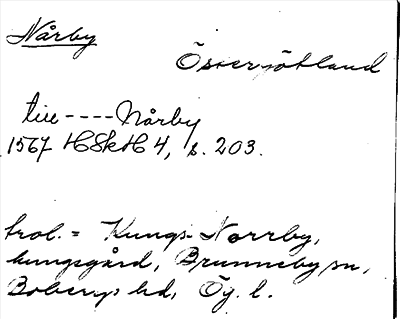 Nårby
Östergötland
till ---- Nårby
1567 HSkH 4, s. 203.
trol. = Kungs-Norrby,
kungsgård, Brunneby sn,
Bobergs hd, Ög. l.